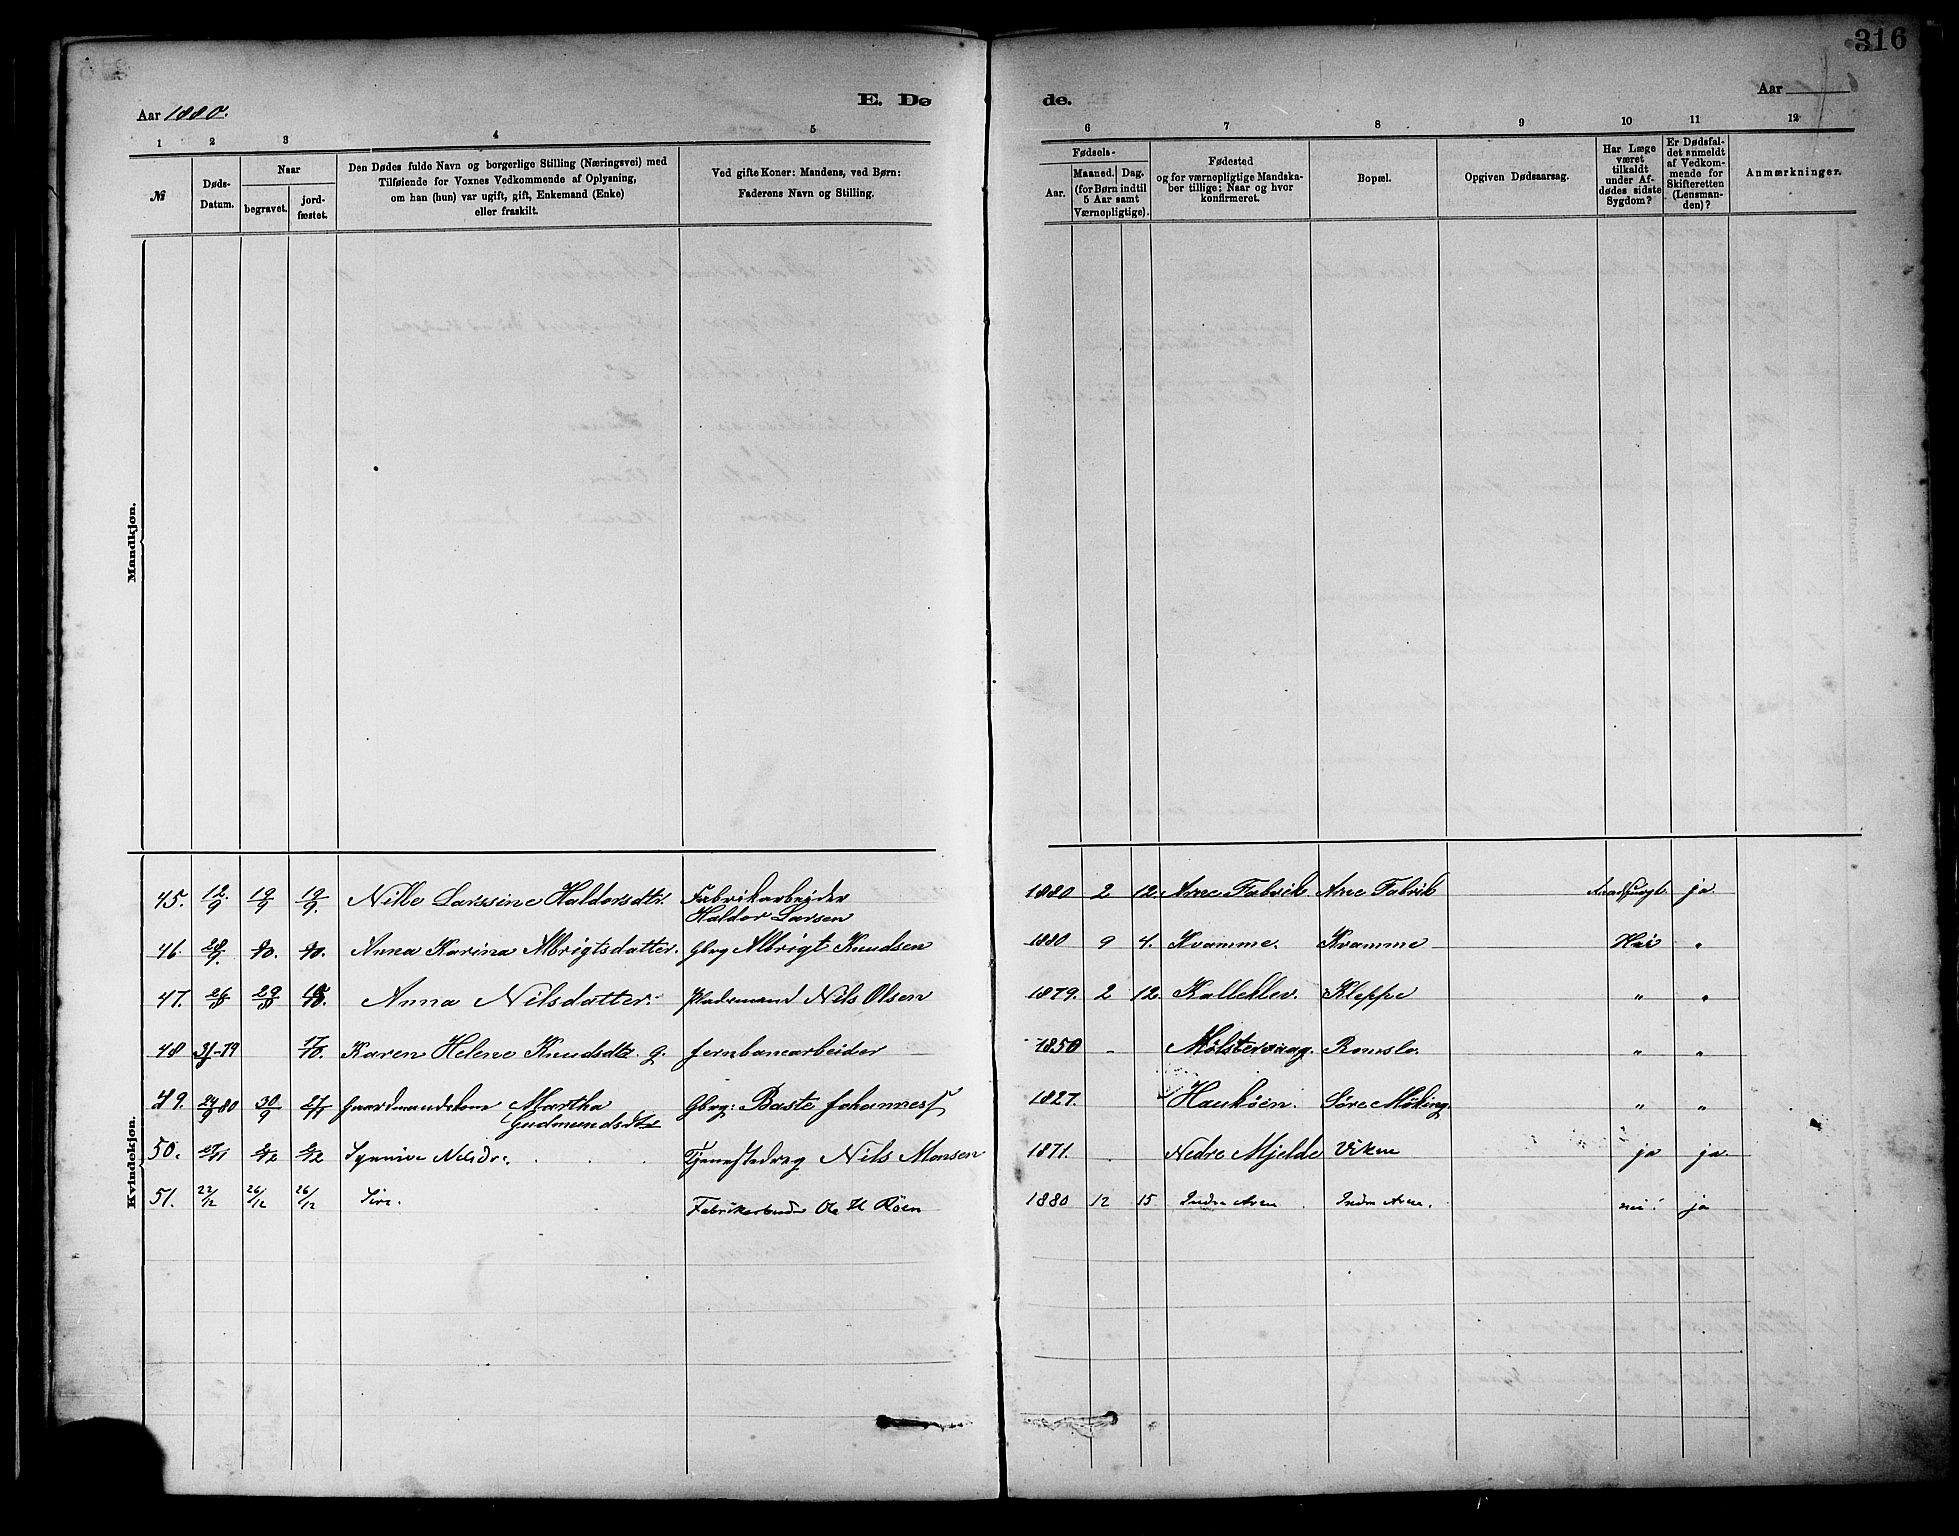 316
Aar 1880.
E. Dø
de.
Aar
1 2 3 4 5
6 7 8 9 10 11 12
№
Døds-
Datum.
Naar
begravet.
jord-
fæstet.
Den Dødes fulde Navn og borgerlige Stilling (Næringsvei) med
Tilføiende for Voxnes Vedkommende af Oplysning,
om han (hun) var ugift, gift, Enkemand (Enke)
eller fraskilt.
Ved gifte Koner: Mandens, ved Børn:
Faderens Navn og Stilling.
Fødsels-
Aar.
Maaned. Dag.
(for Børn indtil
5 Aar samt
Værnepligtige).
Fødested
og for værnepligtige Mandska-
ber tillige: Naar og hvor
konfirmeret.
Bopæl.
Opgiven Dødsaarsag.
Har Læge
været
tilkaldt
under Af-
dødes sidste
Sygdom?
Er Dødsfal-
det anmeldt
af Vedkom-
mende for
Skifteretten
(Lensman-
den)?
Anmærkninger.
Mandkjøn.
Kvindekjøn.
45. 12/9 19/9 19/9. Nille Larssine Haldorsdtr. Fabrikarbeider 1880 2 12. Arne Fabrik. Arne Fabrik ja
Haldor Larsen
46 Anna Karina Albrigtsdatter. Gbrg Albrigt Knudsen 1880 9 4. Kvamme. Kvamme "
47. Anna Nilsdatter. Pladsmand Nils Olsen 1879. 2 12. Kalleklev. Kleppe " "
48 17/10. Karen Helene Knudsdtr. g. Jernbanearbeider 1850 - Molstervaag. Romslo. " "
49. 30/9 Gaardmandskone Martha Gbrg: Baste Johanness 1827. Haukøen. Søre Møking. " "
Gudmundsdtr
50. Synnive Nilsdr. Tjenestedrag Nils Monsen 1871. Nedre Mjelde Viken ja ja
51. 22/12 26/12 26/12 Siri. Fabrikarbeider Ole H Røen 1880 12 15 Indre Arne Indre Arne. nei! ja